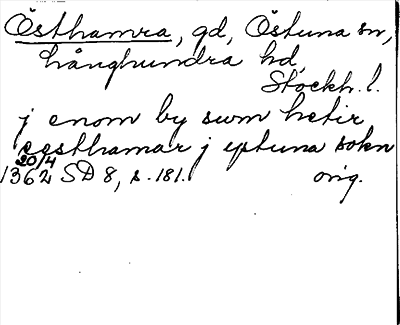 Östhamra, gd, Östuna sn,
Långhundra hd,
Stockh. l.
j enom by swm hetir
eosthamar j ystuna sokn
20/4
1362 SD 8, s. 181. orig.